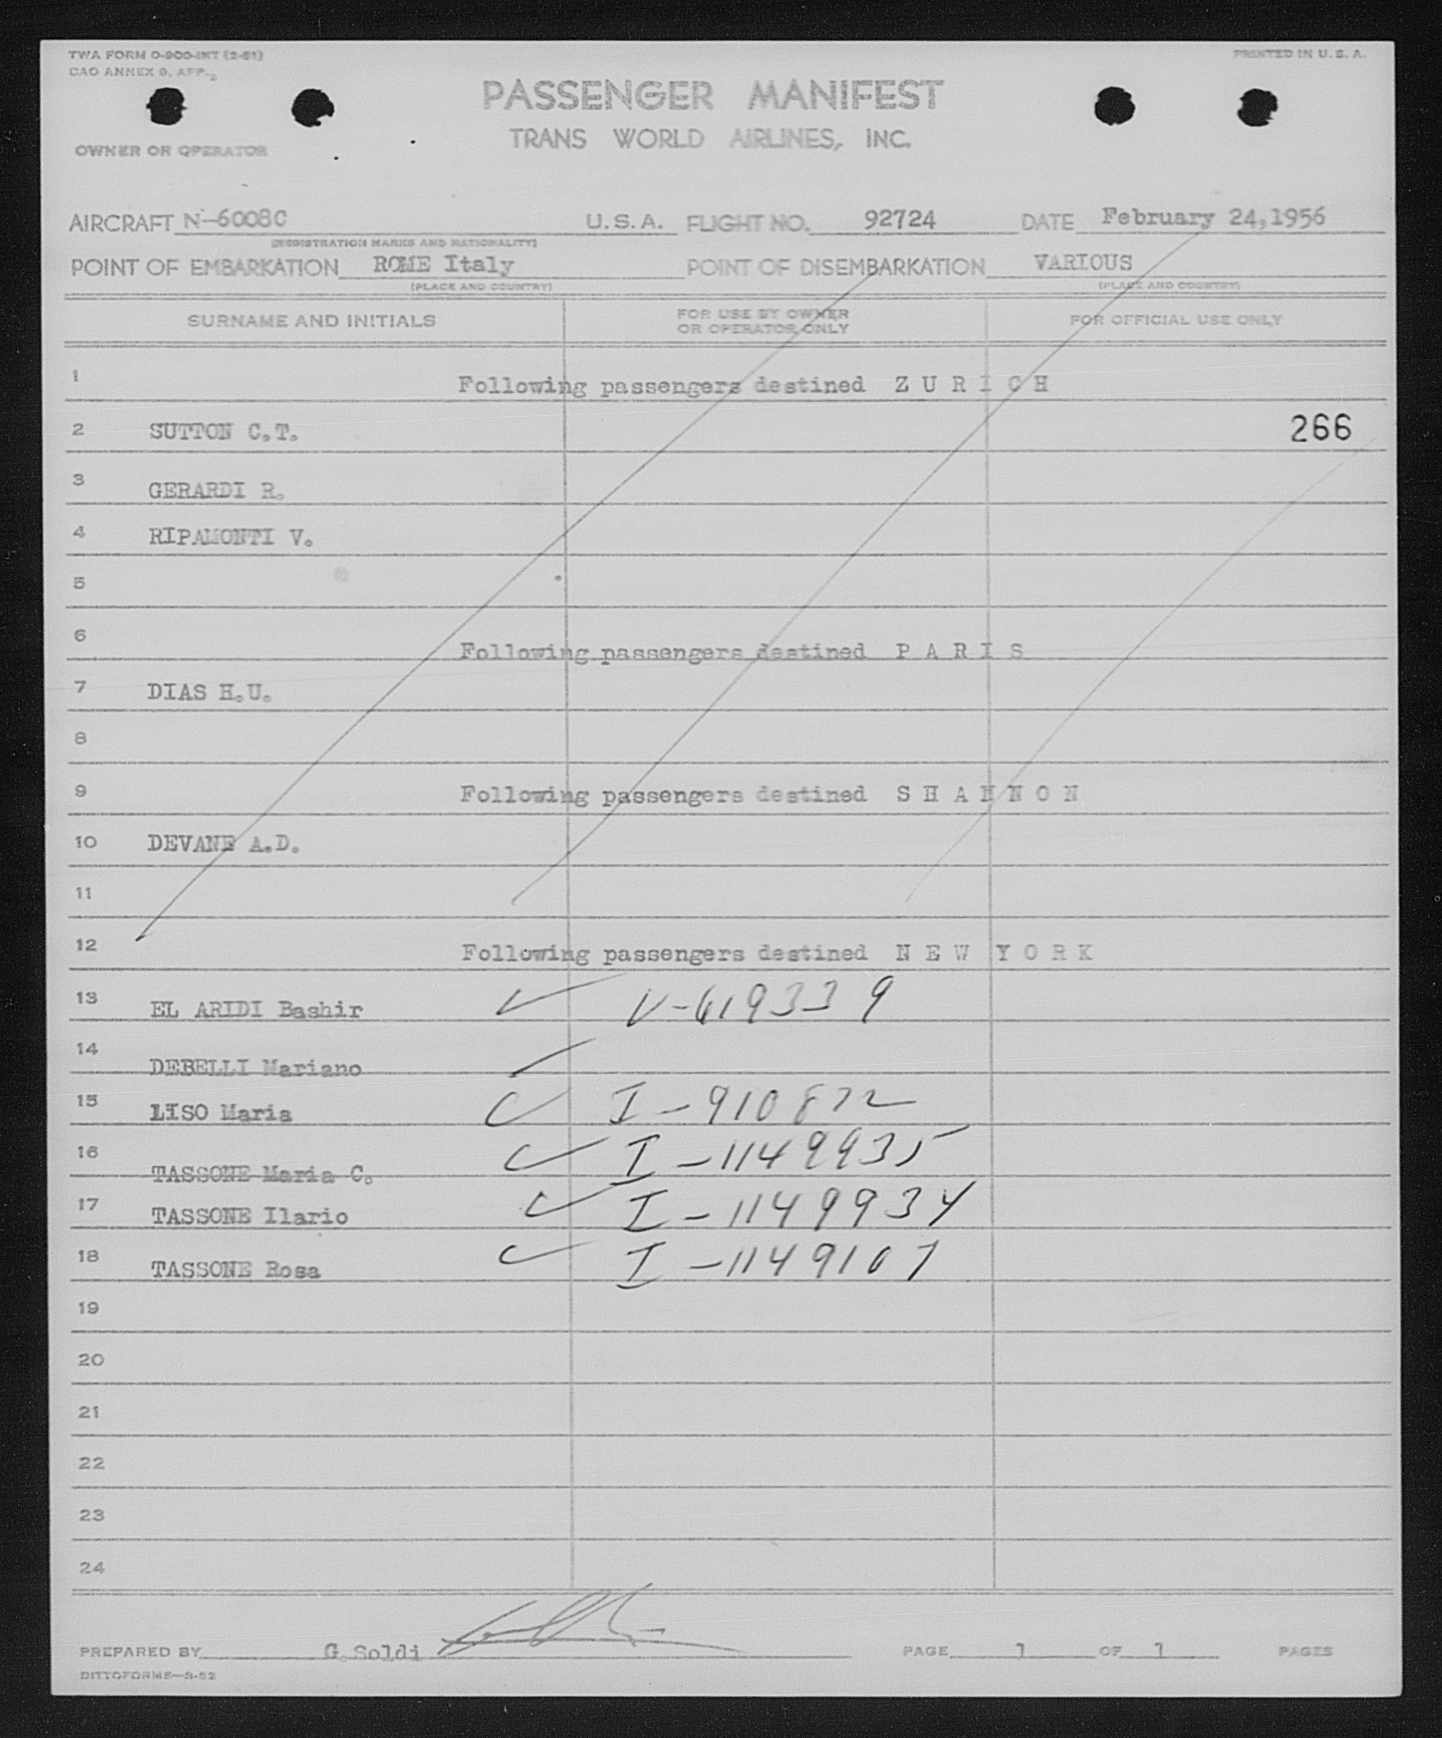 TWA FORM O-900-INT (2-51)
PRINTED IN U. S. A.
CAO ANNEX 9, APP.
PASSENGER MANIFEST
TRANS WORLD AIRLINES, INC.
OWNER OR OPERATOR
AIRCRAFT N-6008C U.S.A. FLIGHT NO. 92724 DATE February 24,1956
(REGISTRATION MARKS AND NATIONALITY)
POINT OF EMBARKATION ROME Italy POINT OF DISEMBARKATION VARIOUS
(PLACE AND COUNTRY) (PLACE AND COUNTRY)
SURNAME AND INITIALS FOR USE BY OWNER OR OPERATOR ONLY FOR OFFICIAL USE ONLY
1 Following passengers destined Z U R I C H
2 SUTTON C.T. 266
3 GERARDI R.
4 RIPAMONTI V.
5
6 Following passengers destined P A R I S
7 DIAS H.U.
8
9 Following passengers destined S H A N N O N
10 DEVANE A.D.
11
12 Following passengers destined N E W Y O R K
13 EL ARIDI Bashir ✓ V-619339
14 DEBELLI Mariano
15 LISO Maria ✓ I-910872
16 TASSONE Maria C. ✓ I-1149935
17 TASSONE Ilario ✓ I-1149934
18 TASSONE Rosa ✓ I-1149107
19
20
21
22
23
24
PREPARED BY G.Soldi PAGE 1 OF 1 PAGES
DITTOFORMS—5-52